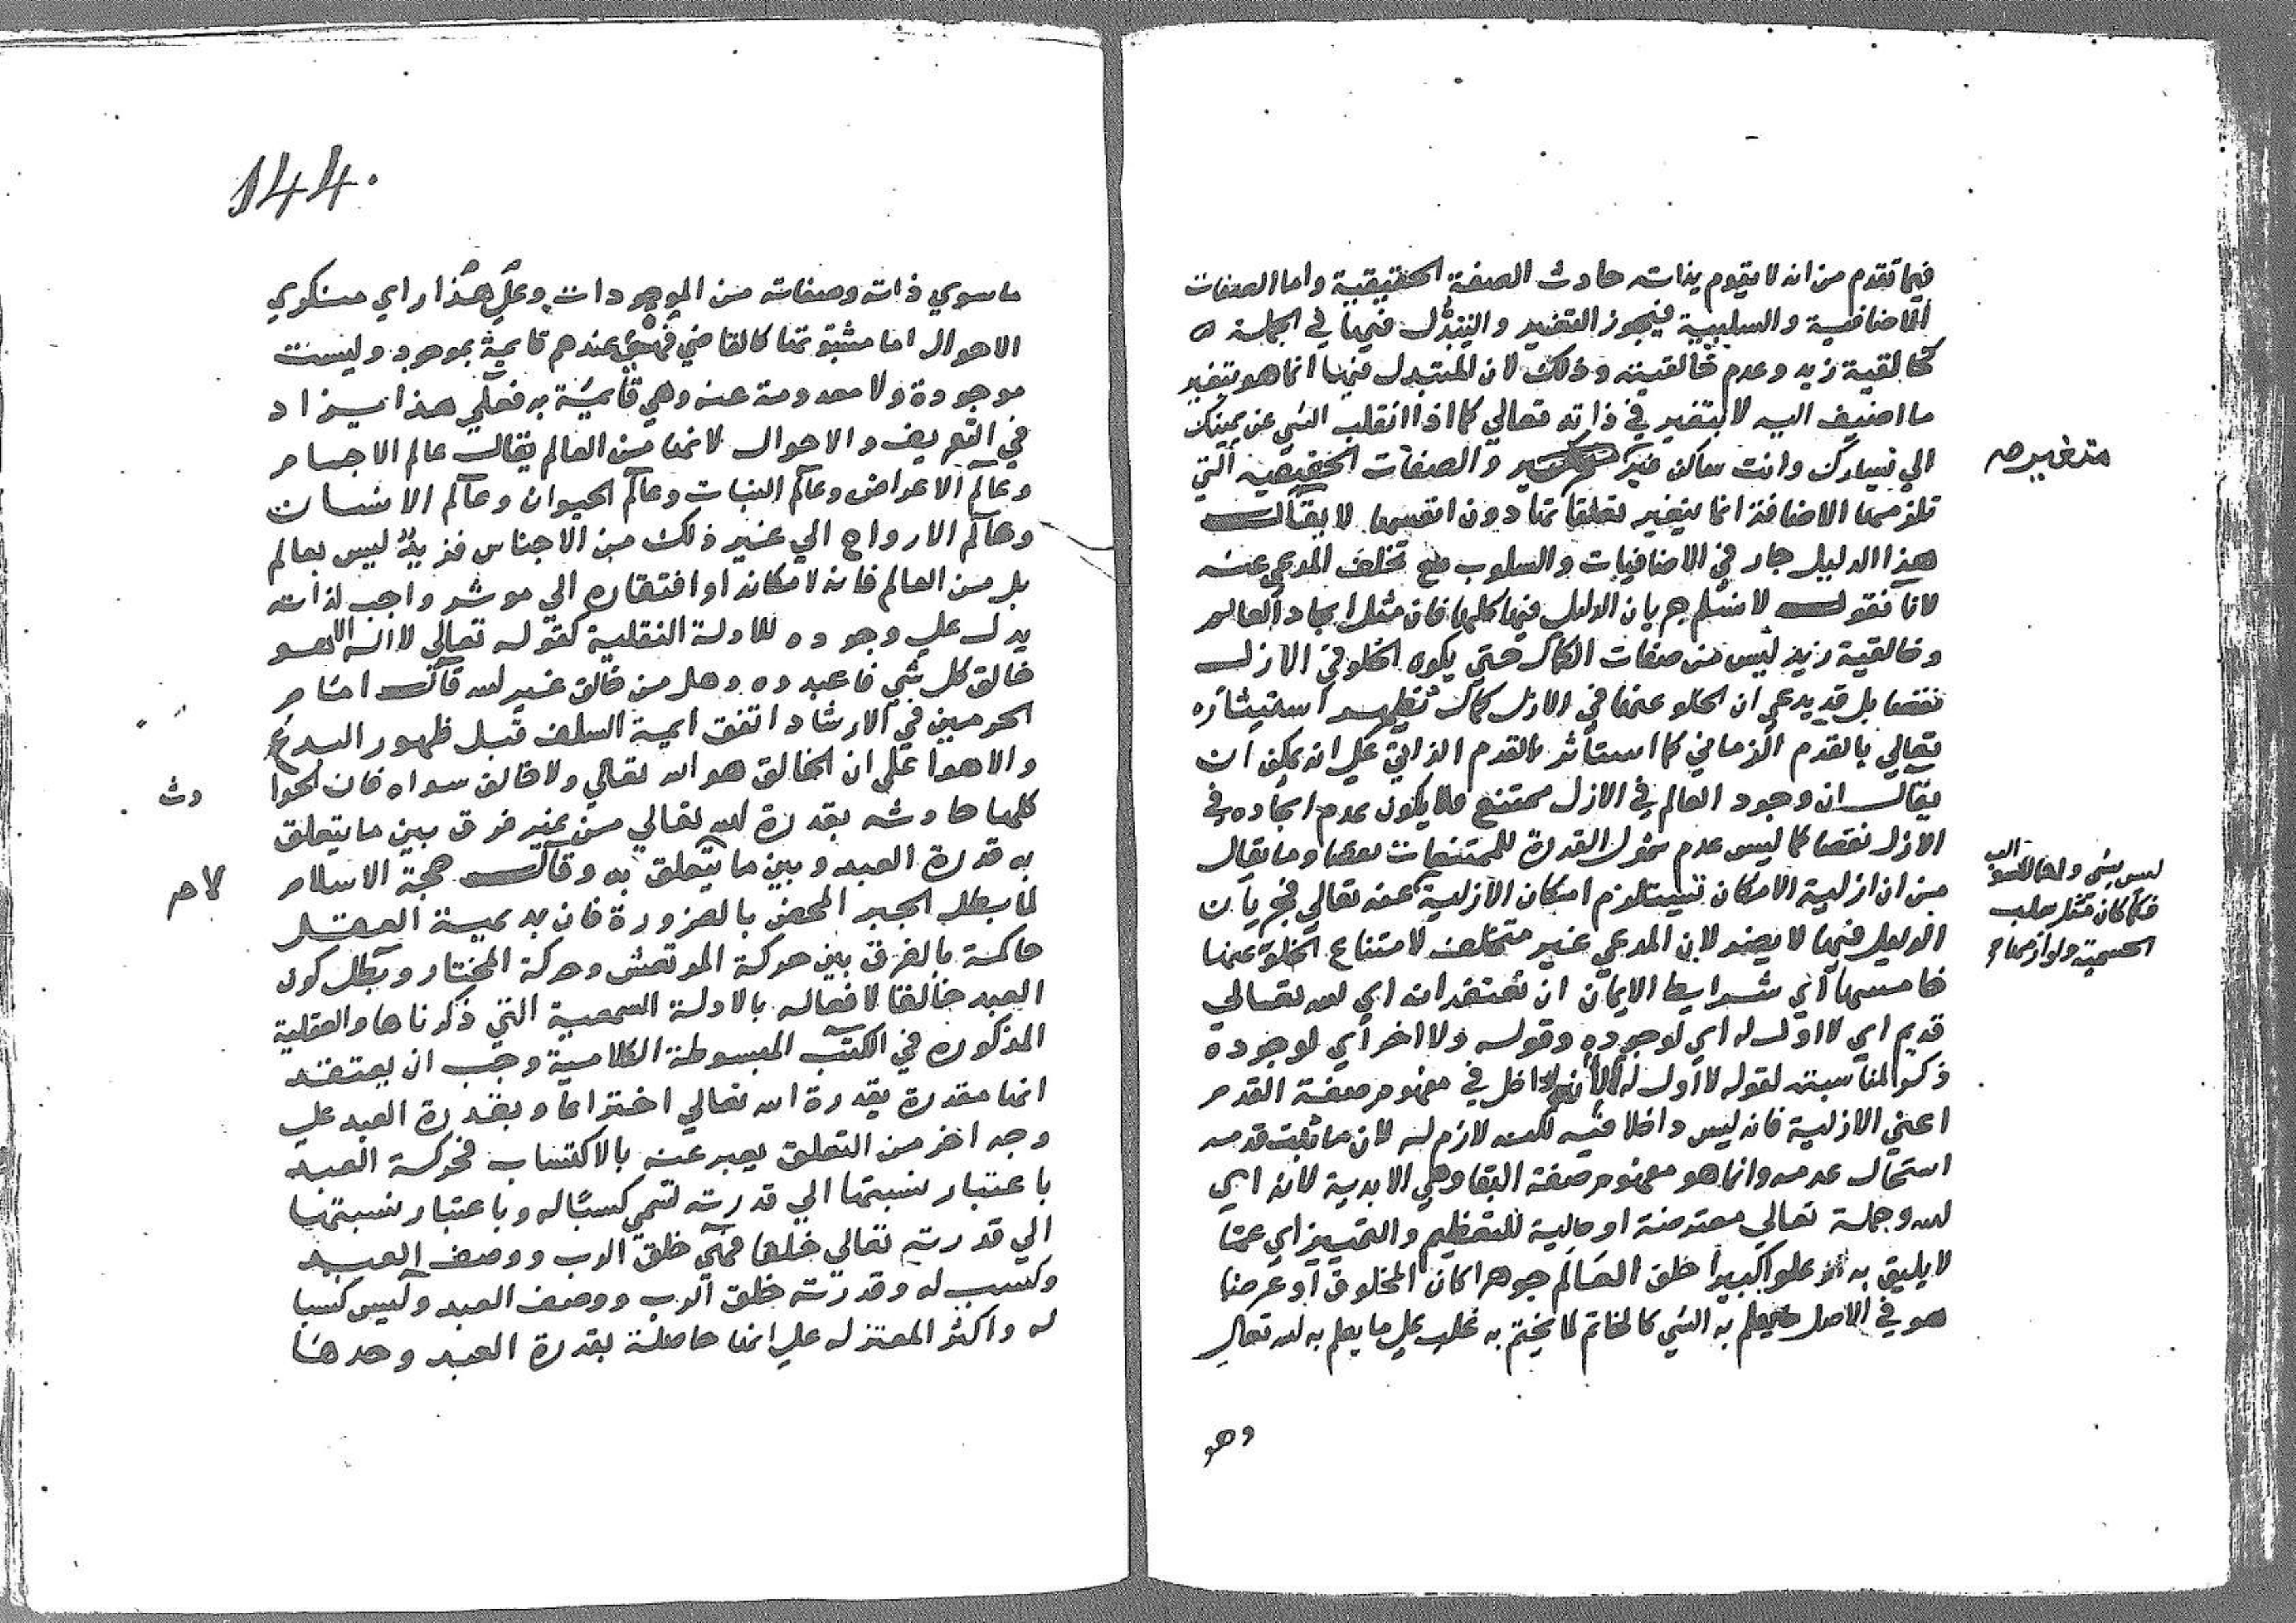 فيما تقدم من انه لا يقوم بذاته حادث الصفة الحقيقية واما الصفات
الاضافية والسلبية فيجوز التغير والتبدل فيها في الجملة
كخالقية زيد وعدم خالقيته وذلك لان المتبدل فيها انما هو بتغير
ما اضيف اليه لا بتغير في ذاته تعالي كما اذا انقلب الشي عن يمينك
الي يسارك وانت ساكن غير والصفات الحقيقية التي
متغير صح
تلزمها الاضافة انما يتغير تعلقاتها دون انفسها لا يقال
هذا الدليل جار في الاضافيات والسلوب مع تخلف المدعي عنه
لانا نقول لا نسلم جريان الدليل فيها كلها فان مثل ايجاد العالم
وخالقية زيد ليس من صفات الكمال حتي يكون الخلو في الازل
نقصا بل قد يدعي ان الخلو عنها في الازل كمال استيثاره
تعالي بالقدم الزماني كما استأثر بالقدم الذاتي علي انه يمكن ان
يقال ان وجود العالم في الازل ممتنع فلا يكون عدم ايجاده في
الازل نقصا كما ليس عدم شمول القدرة للممتنعات نقصا وما يقال
من ان ازلية الامكان تستلزم امكان الازلية عنه تعالي فجريان
الدليل فيها لا يضر لان المدعي غير متخلف لامتناع الخلو عنها
ليس بشي واما السلوب
فما كان مثل سلب
الجسمية ولوازمها
خامسها اي شرايط الايمان ان نعتقد انه اي الله تعالي
قديم اي لا اول له اي لوجوده وقوله ولا اخر اي لوجوده
ذكر لمناسبته لقوله لا اول له لا لانه داخل في مفهوم صفة القدم
اعني الازلية فانه ليس داخلا فيه لكنه لازم له لان ما ثبت قدمه
استحال عدمه وانما هو مفهوم صفة البقا وهي الابدية لانه اي
الله وجملة تعالي معترضة او حالية للتعظيم والتمييز اي عما
لا يليق به علوا كبيرا خلق العالم جوهرا كان المخلوق او عرضا
هو في الاصل يعلم به الشي كالخاتم لما يختم به غلب علي ما يعلم به الله تعالي
وهو
144
ما سوي ذاته وصفاته من الموجودات وعلي هذا راي منكري
الاحوال اما مثبتوتها كالقاضي فهي عندهم قايمة بموجود وليست
موجودة ولا معدومة عنه وهي قايمة به فعلي هذا يزاد
في التعريف والاحوال لانها من العالم يقال عالم الاجسام
وعالم الاعراض وعالم النبات وعالم الحيوان وعالم الانسان
وعالم الارواح الي غير ذلك من الاجناس فزيد ليس بعالم
بل من العالم فانه لامكانه او افتقاره الي موثر واجب لذاته
يدل علي وجوده للادلة النقلية كقوله تعالي لا اله الا هو
خالق كل شي فاعبدوه وهل من خالق غير الله قال امام
الحرمين في الارشاد اتفق ايمة السلف قبل ظهور البدع
والاهوا علي ان الخالق هو الله تعالي ولا خالق سواه فان الحوا
دث
كلها حادثه بقدرة الله تعالي من غير فرق بين ما يتعلق
به قدرة العبد وبين ما يتعلق به وقال حجة الاسلام
لام
لما بطل الجبر المحض بالضرورة فان بديهية العقل
حاكمة بالفرق بين حركة المرتعش وحركة المختار وبطل كون
العبد خالقا لافعاله بالادلة السمعية التي ذكرناها والعقلية
المذكورة في الكتب المبسوطة الكلامية وجب ان يعتقد
انها مقدرة بقدرة الله تعالي اختراعا وبقدرة العبد علي
وجه اخر من التعلق يعبر عنه بالاكتساب فحركة العبد
باعتبار نسبتها الي قدرته تسمي كسبا له وباعتبار نسبتها
الي قدرته تعالي خلقا فهي خلق الرب ووصف العبد
وكسب له وقدرته خلق الرب ووصف العبد وليس كسبا
له واكثر المعتزله علي انها حاصلة بقدرة العبد وحدها